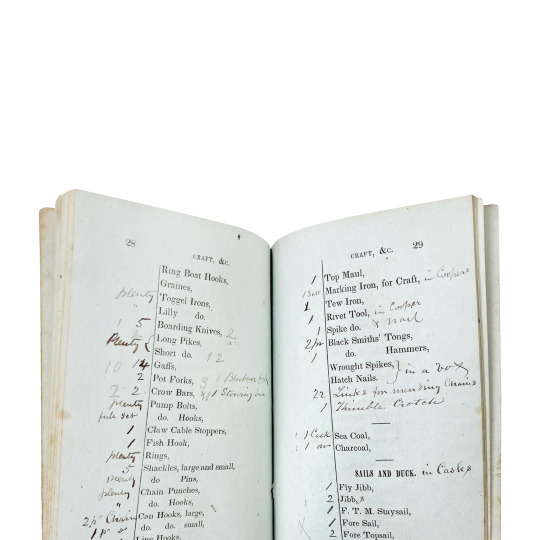 28
CRAFT, &C.
Ring Boat Hooks,
Graines,
plenty Toggel Irons,
" Lilly do.
1 5 Boarding Knives, 2
Plenty { Long Pikes,
Short do. 12
10 14 Gaffs,
2 Pot Forks, 3 1 Blubber
2 2 Crow Bars, 1
plenty Pump Bolts,
full set do. Hooks,
1 Claw Cable Stoppers,
1 Fish Hook,
plenty Rings,
5 Shackles, large and small,
plenty do Pins,
plenty Chain Punches,
" do. Hooks,
2 pr Chain Can Hooks, large,
1 pr " do. do. small,
Line Hooks,
CRAFT, &C. 29
1 Top Maul,
1 Marking Iron, for Craft, in Coopers
1 Tew Iron,
1 Rivet Tool, in Cooper
1 Spike do. X nail
2 pr Black Smiths' Tongs,
1 do. Hammers,
Wrought Spikes, }
Hatch Nails. } in a box
22 Links for mending Chains
1 Thimble Crotch
1 1 Cask Sea Coal,
1 1 Charcoal,
SAILS AND DUCK. in Casks
1 Fly Jibb,
2 Jibb,s
1 F. T. M. Staysail,
1 Fore Sail,
2 Fore Topsail,